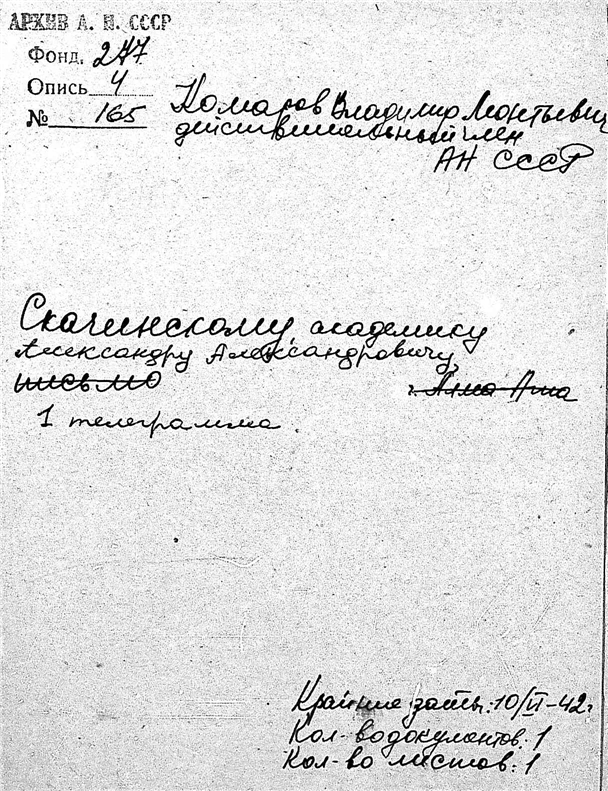 АРХИВ А. Н. СССР
Фонд. 247
Опись 4
№ 165
Комаров Владимир Леонтьевич
действительный член
АН СССР
Скачинскому, академику
Александру Александровичу,
письмо г. Алма Ата
1 телеграмма
Крайние даты: 10/II-42г.
Кол-во документов: 1
Кол-во листов: 1